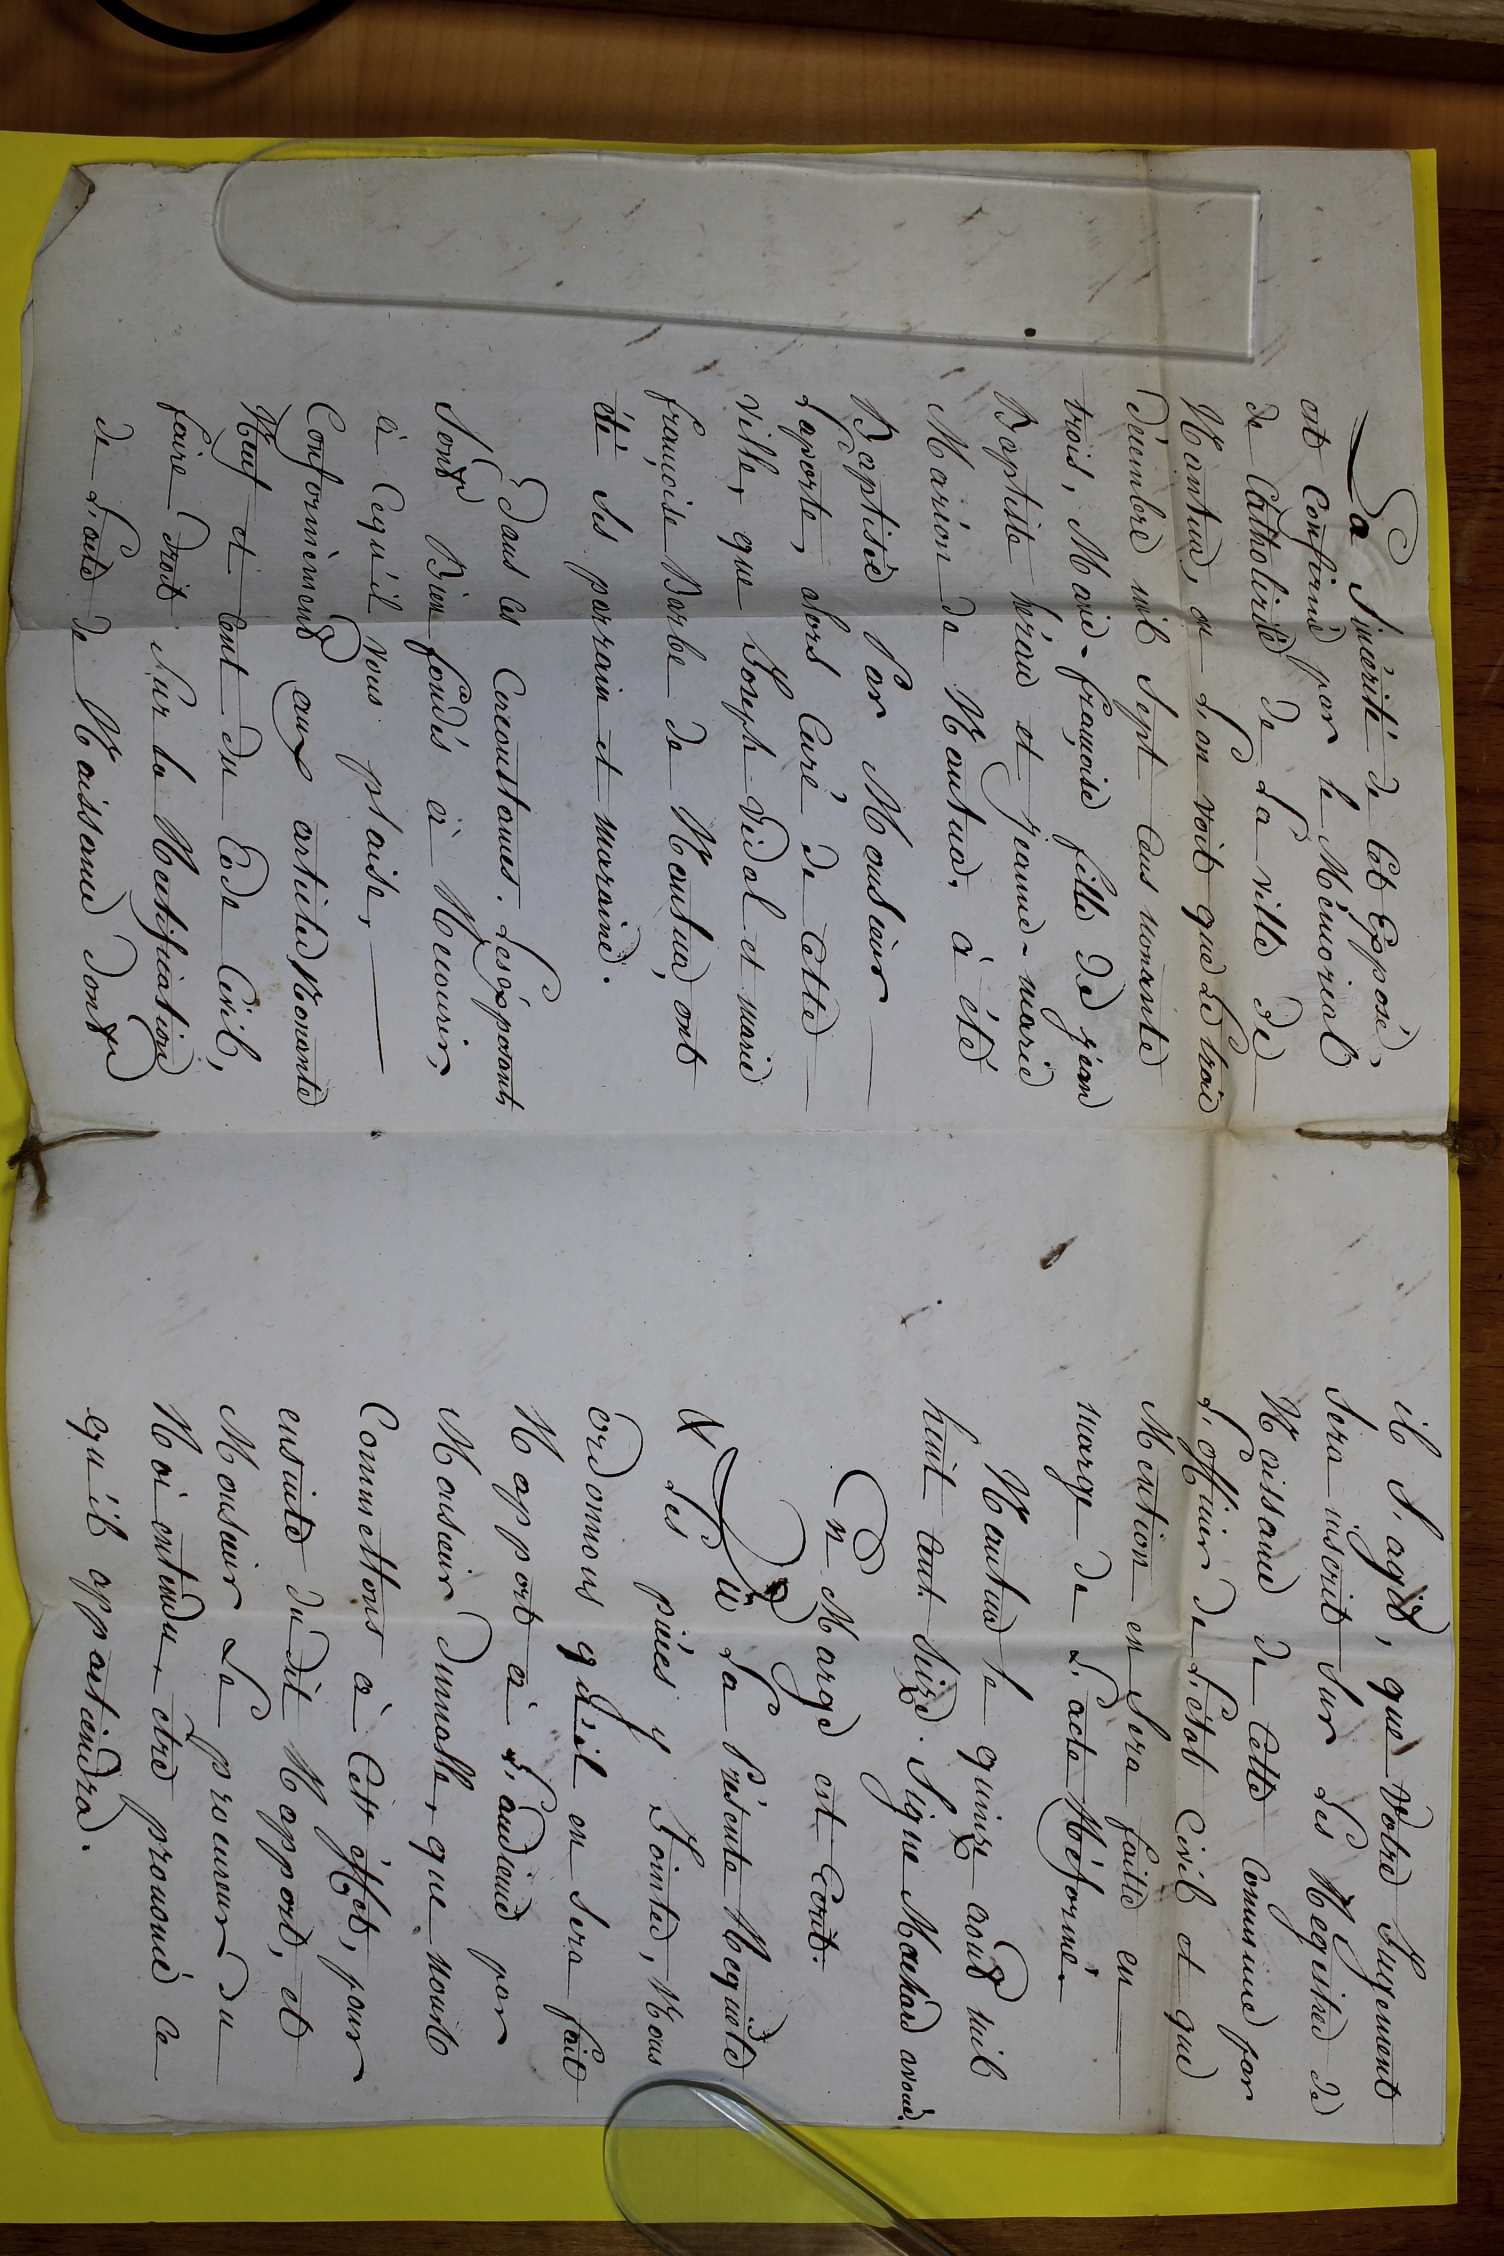 La Sincérité de Cet Exposé,
est Confirmé par le Mémorial
de Catholicité de La ville de
Nantua, ou L'on voit que Le trois
Décembre mil Sept Cens nonante
trois, Marie-françoise fille de jéan
Baptiste héran et jeanne-marie
Marion de Nantua, à été
Baptisée Par Monsieur
Laporte, alors Curé de Cette
ville, que Joseph Vidal et marie
françoise Barbe de Nantua, ont
été Ses parrain et maraine.
Dans Ces Circonstances. Les éxposants
Sont Bien fondés à Recourir,
à Cequ'il Vous plaise,
Conformément aux articles Nonante
Neuf et Cent du Code Civil,
faire Droit Sur la Rectification
de L'acte de Naissance Dont
il S'agit, que Votre Jugement
Sera inscrit Sur Les Registres de
Naissance de Cette Commune par
L'officier de L'état Civil et que
Mention en Sera faitte en
marge de L'acte Réformé.
Nantua le quinze août mil
huit Cent Seize. Signé avoué.
En Marge est Ecrit.
Vu La Présente Requête
& Les pièces y Jointes, Nous
ordonnons qu'il en Sera fait
Rapport à L'audience par
Monsieur que nous
Commettons à Cett éffet, pour
ensuite du dit Rapport, et
Monsieur Le procureur du
Roi entendu, etre prononcé ce
qu'il appartiendra.